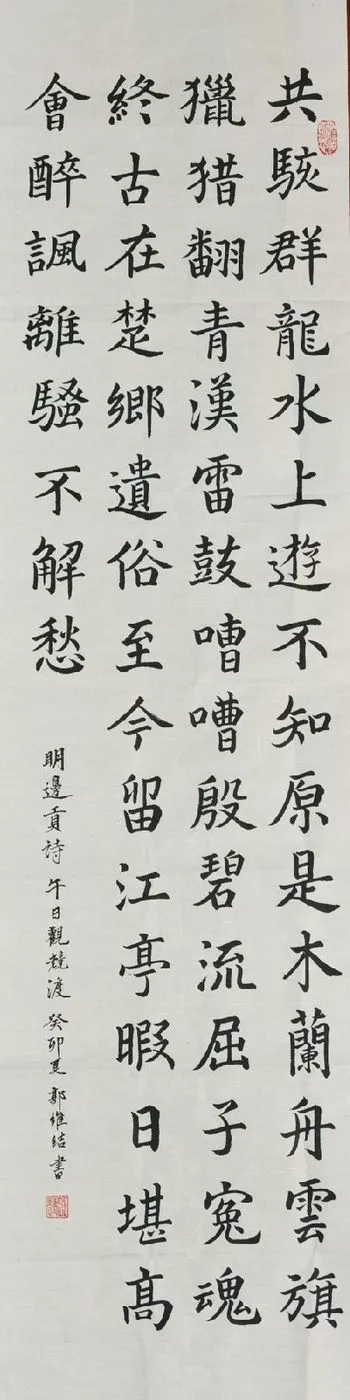 共駭群龍水上遊不知原是木蘭舟雲旗
獵猎翻青漢雷鼓嘈嘈殷碧流屈子寃魂
終古在楚鄉遺俗至今留江亭暇日堪高
會醉諷離騷不解愁
明邊貢詩午日觀競渡癸卯夏郭維結書